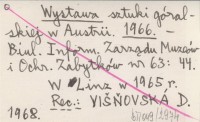 Wystawa sztuki góral-
skiej w Austrii. 1966. –
Biul. Inform. Zarządu Muzeów
i Ochr. Zabytków nr 63: 44.
W Linz w 1965 r.
Rec.: VIŠŇOVSKÁ D.
1968.